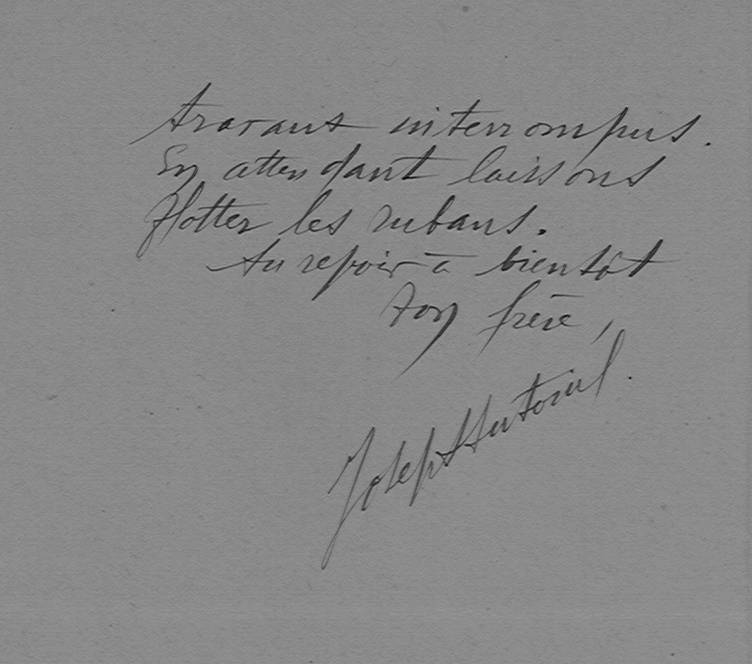 travaux interrompus.
En attendant laissons
flotter les rubans.
Au revoir à bientôt
ton frère,
Joseph